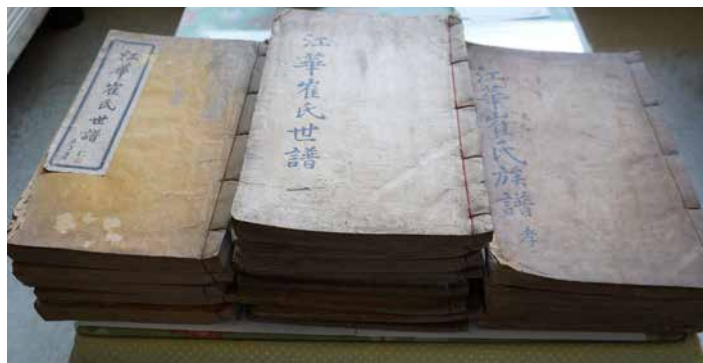 江華崔氏世譜
江華崔氏世譜
一
江華崔氏族譜
孝